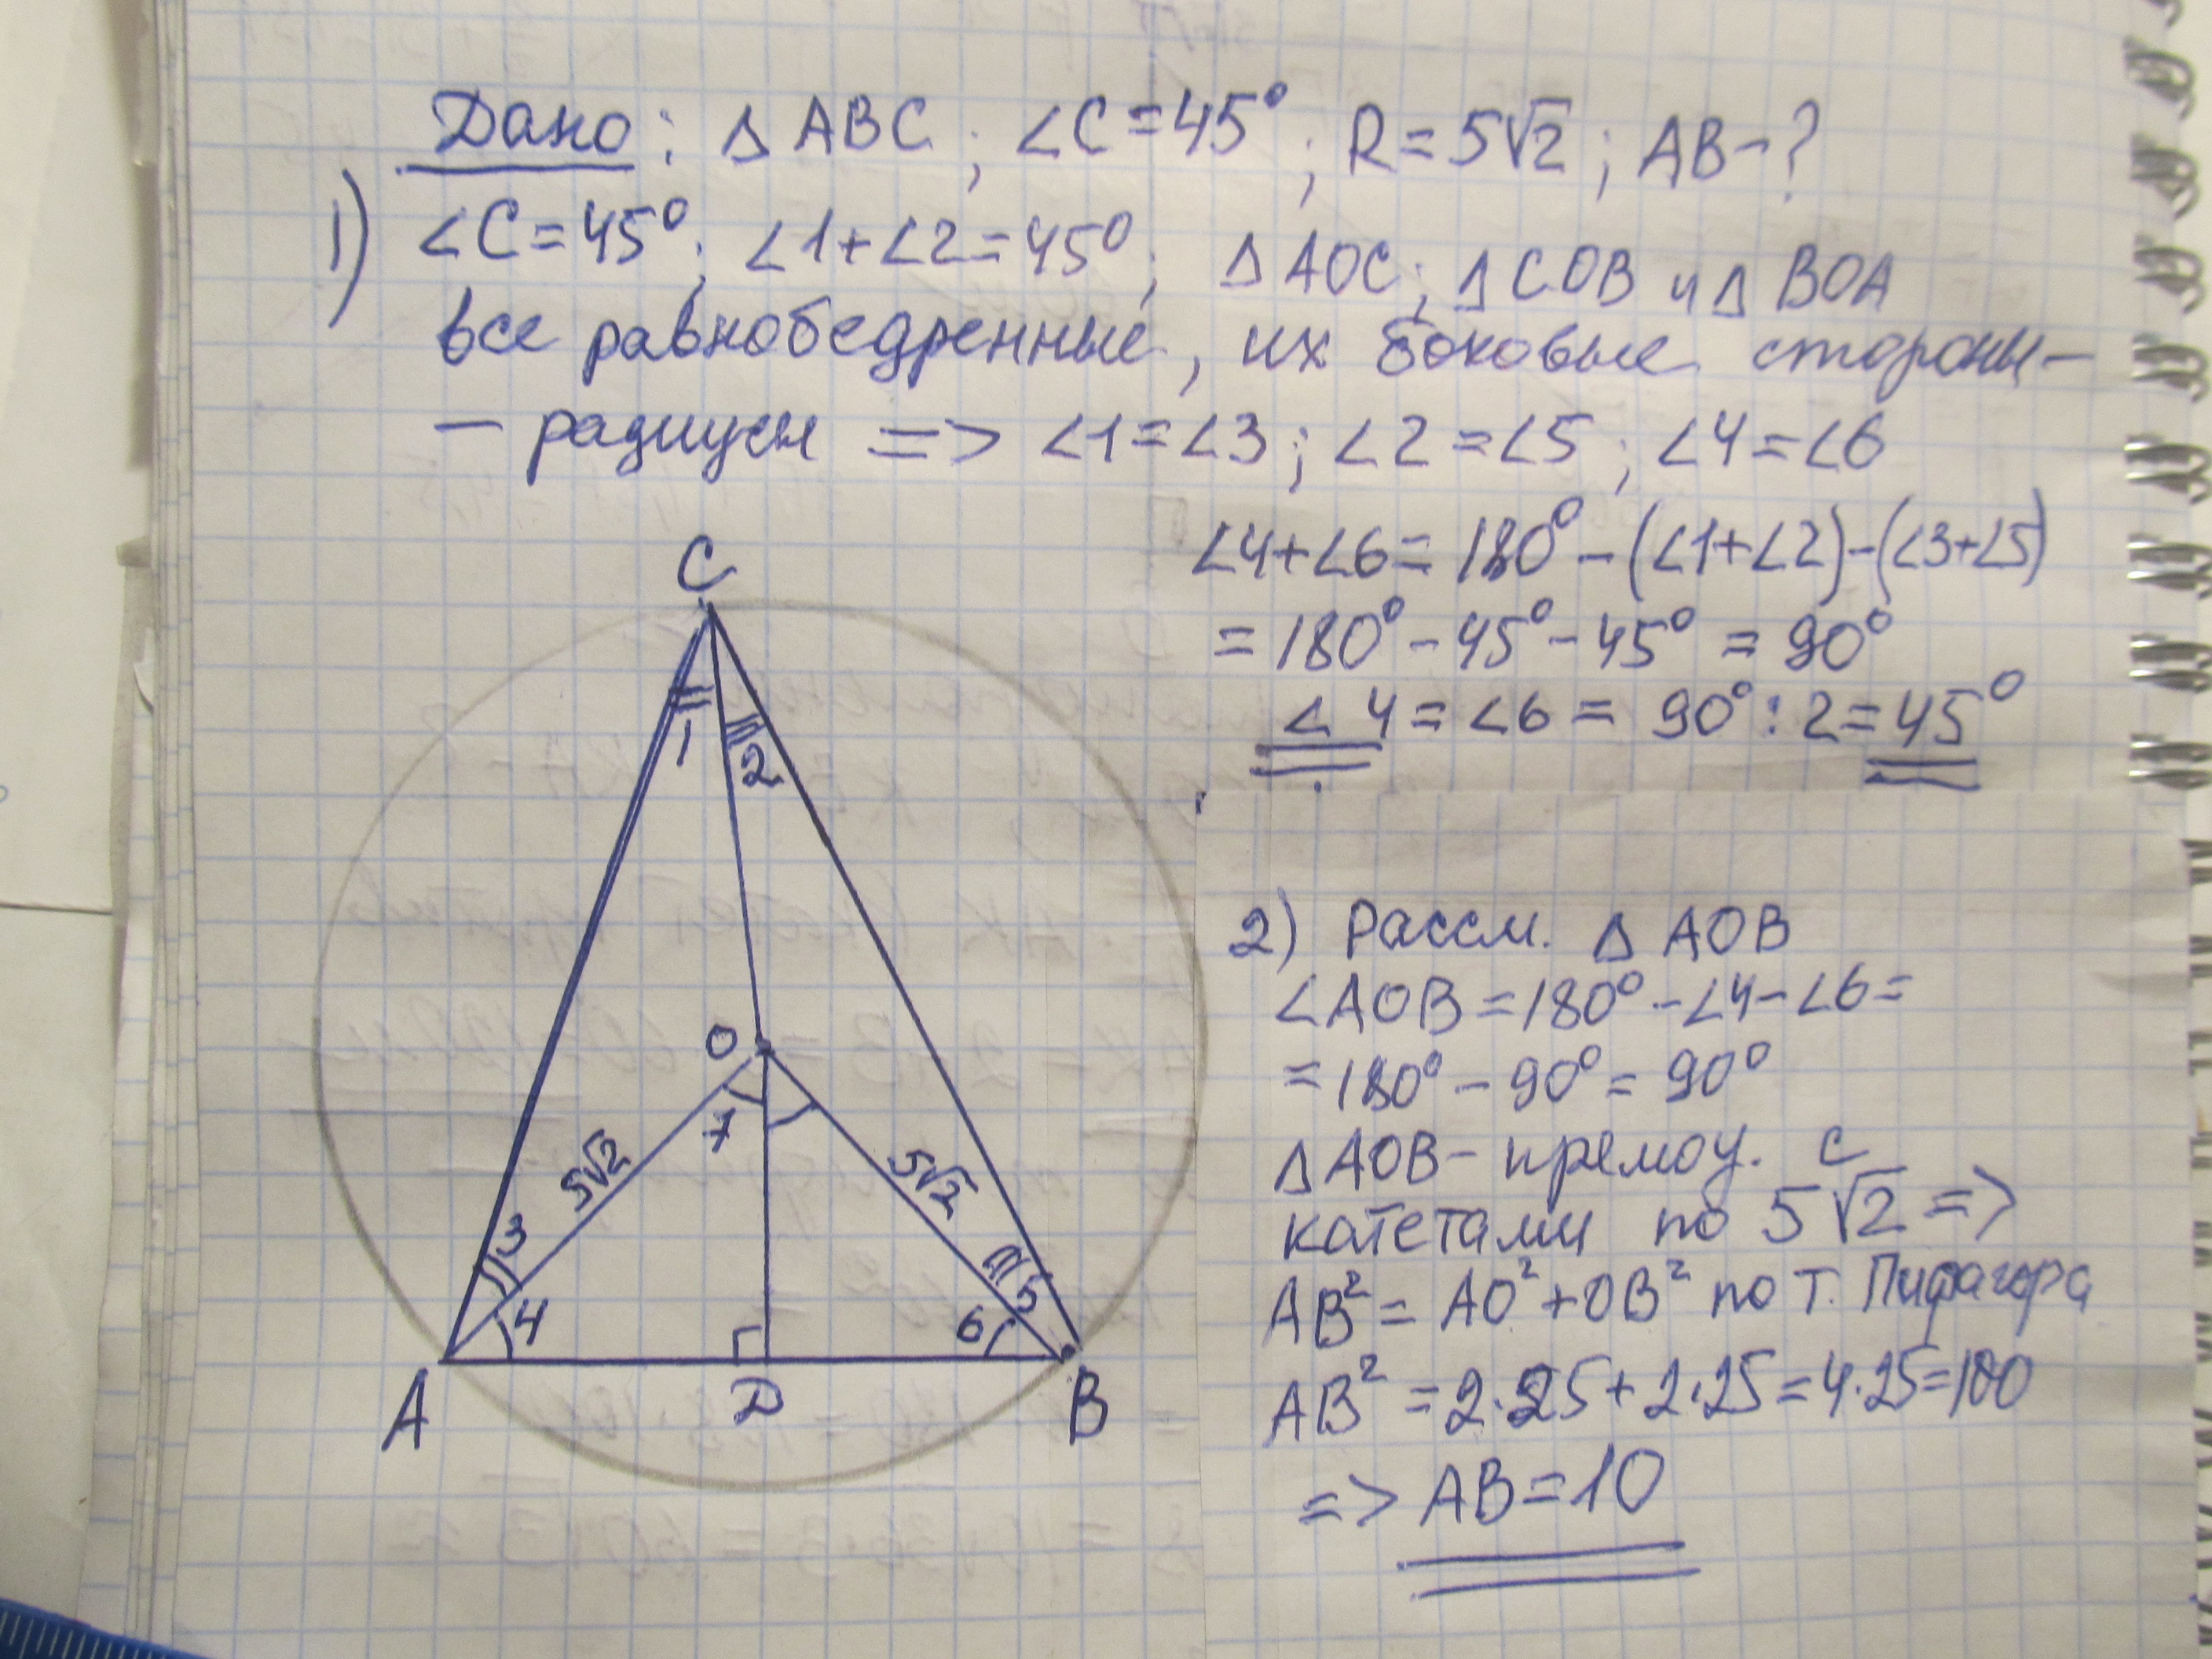 Дано: Δ ABC; ∠C=45°; R=5√2; AB-?
1) ∠C=45°; ∠1+∠2=45°; Δ AOC; Δ COB и Δ BOA
все равнобедренные, их боковые стороны-
- радиусы => ∠1=∠3; ∠2=∠5; ∠4=∠6
∠4+∠6= 180°-(∠1+∠2)-(∠3+∠5)
= 180°-45°-45° = 90°
∠4=∠6= 90°:2=45°
C
1
2
O
7
5√2
5√2
3
4
5
6
A
D
B
2) Рассм. Δ AOB
∠AOB=180°-∠4-∠6=
=180°-90°=90°
ΔAOB-прямоу. с
катетами по 5√2 =>
AB²= AO²+OB² по т. Пифагора
AB²=2·25+2·25=4·25=100
=> AB=10